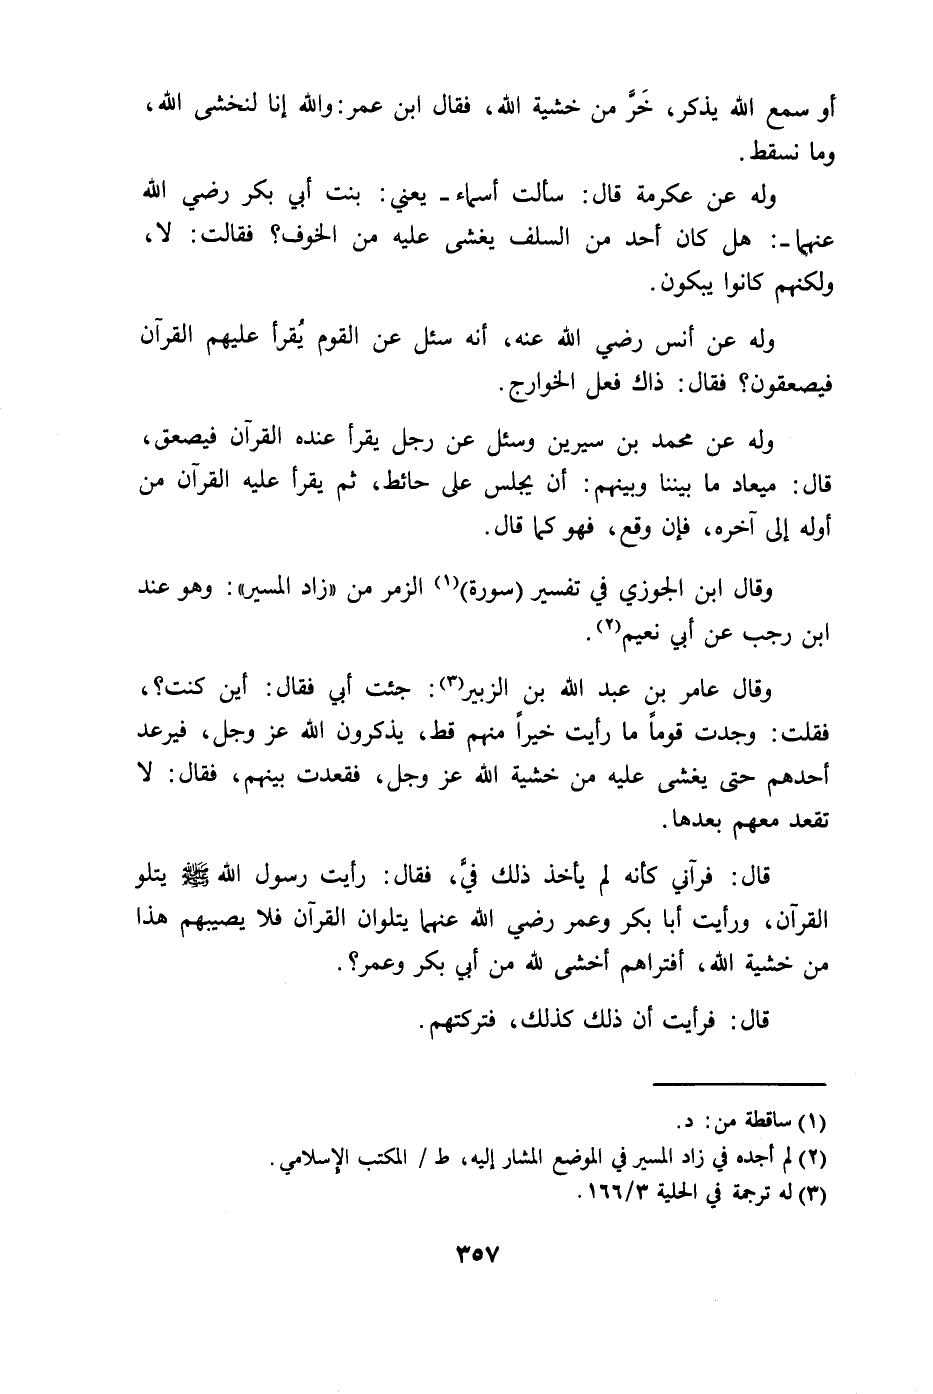 أو سمع الله يذكر، خَرَّ من خشية الله، فقال ابن عمر: والله إنا لنخشى الله،
وما نسقط.
وله عن عكرمة قال: سألت أسماء ـ يعني: بنت أبي بكر رضي الله
عنهما ـ: هل كان أحد من السلف يغشى عليه من الخوف؟ فقالت: لا،
ولكنهم كانوا يبكون.
وله عن أنس رضي الله عنه، أنه سئل عن القوم يُقرأ عليهم القرآن
فيصعقون؟ فقال: ذاك فعل الخوارج.
وله عن محمد بن سيرين وسئل عن رجل يقرأ عنده القرآن فيصعق،
قال: ميعاد ما بيننا وبينهم: أن يجلس على حائط، ثم يقرأ عليه القرآن من
أوله إلى آخره، فإن وقع، فهو كما قال.
وقال ابن الجوزي في تفسير (سورة)(١) الزمر من «زاد المسير»: وهو عند
ابن رجب عن أبي نعيم(٢).
وقال عامر بن عبد الله بن الزبير(٣): جئت أبي فقال: أين كنت؟،
فقلت: وجدت قوماً ما رأيت خيراً منهم قط، يذكرون الله عز وجل، فيرعد
أحدهم حتى يغشى عليه من خشية الله عز وجل، فقعدت بينهم، فقال: لا
تقعد معهم بعدها.
قال: فرآني كأنه لم يأخذ ذلك فيَّ، فقال: رأيت رسول الله ﷺ يتلو
القرآن، ورأيت أبا بكر وعمر رضي الله عنهما يتلوان القرآن فلا يصيبهم هذا
من خشية الله، أفتراهم أخشى لله من أبي بكر وعمر؟.
قال: فرأيت أن ذلك كذلك، فتركتهم.
(١) ساقطة من: د.
(٢) لم أجده في زاد المسير في الموضع المشار إليه، ط / المكتب الإسلامي.
(٣) له ترجمة في الحلية ١٦٦/٣.
٣٥٧